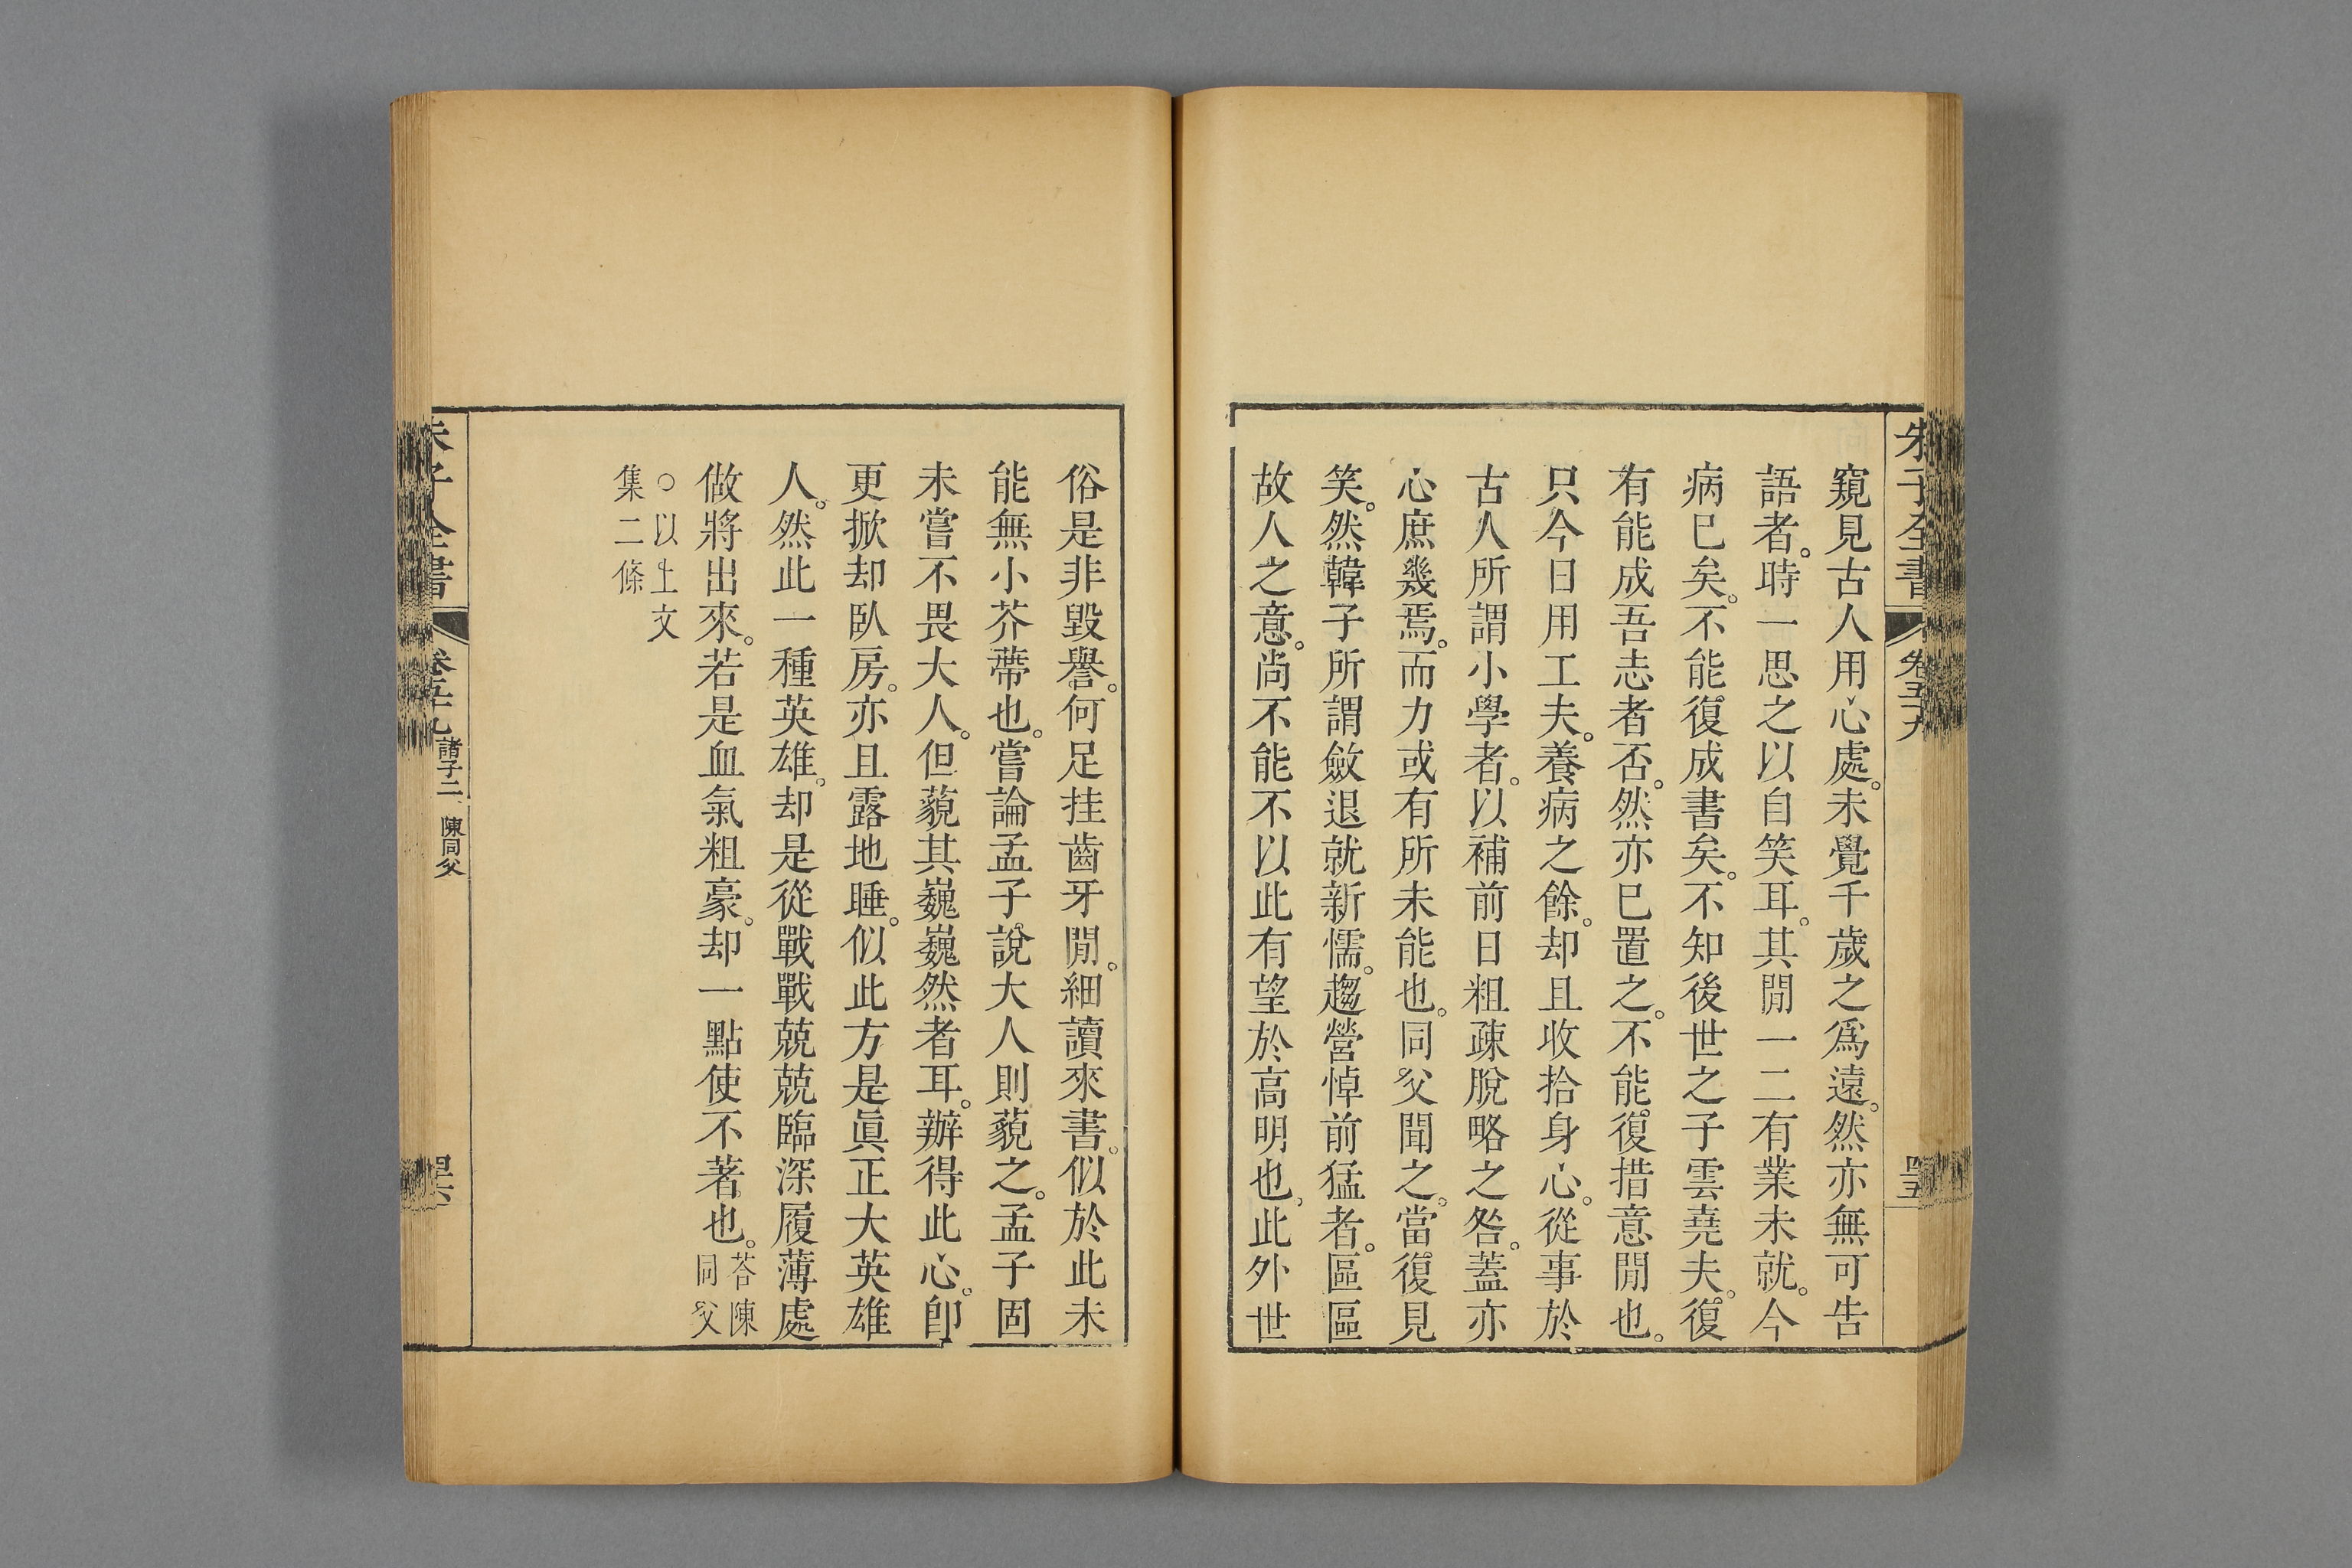 朱子全書 卷五十九 四十五
窺見古人用心處。未覺千歲之爲遠。然亦無可告
語者。時一思之以自笑耳。其閒一二有業未就。今
病已矣。不能復成書矣。不知後世之子雲堯夫。復
有能成吾志者否。然亦已置之。不能復措意閒也。
只今日用工夫。養病之餘。却且收拾身心。從事於
古人所謂小學者。以補前日粗疎脫略之咎。蓋亦
心庶幾焉。而力或有所未能也。同父聞之。當復見
笑。然韓子所謂斂退就新懦。趨營悼前猛者。區區
故人之意。尚不能不以此有望於高明也。此外世
俗是非毀譽。何足挂齒牙閒。細讀來書。似於此未
能無小芥蔕也。嘗論孟子說大人則藐之。孟子固
未嘗不畏大人。但藐其巍巍然者耳。辦得此心。卽
更掀却臥房。亦且露地睡。似此方是眞正大英雄
人。然此一種英雄。却是從戰戰兢兢臨深履薄處
做將出來。若是血氣粗豪。却一點使不著也。答陳
同父
○以上文
集二條
朱子全書 卷五十九 諸子二 陳同父